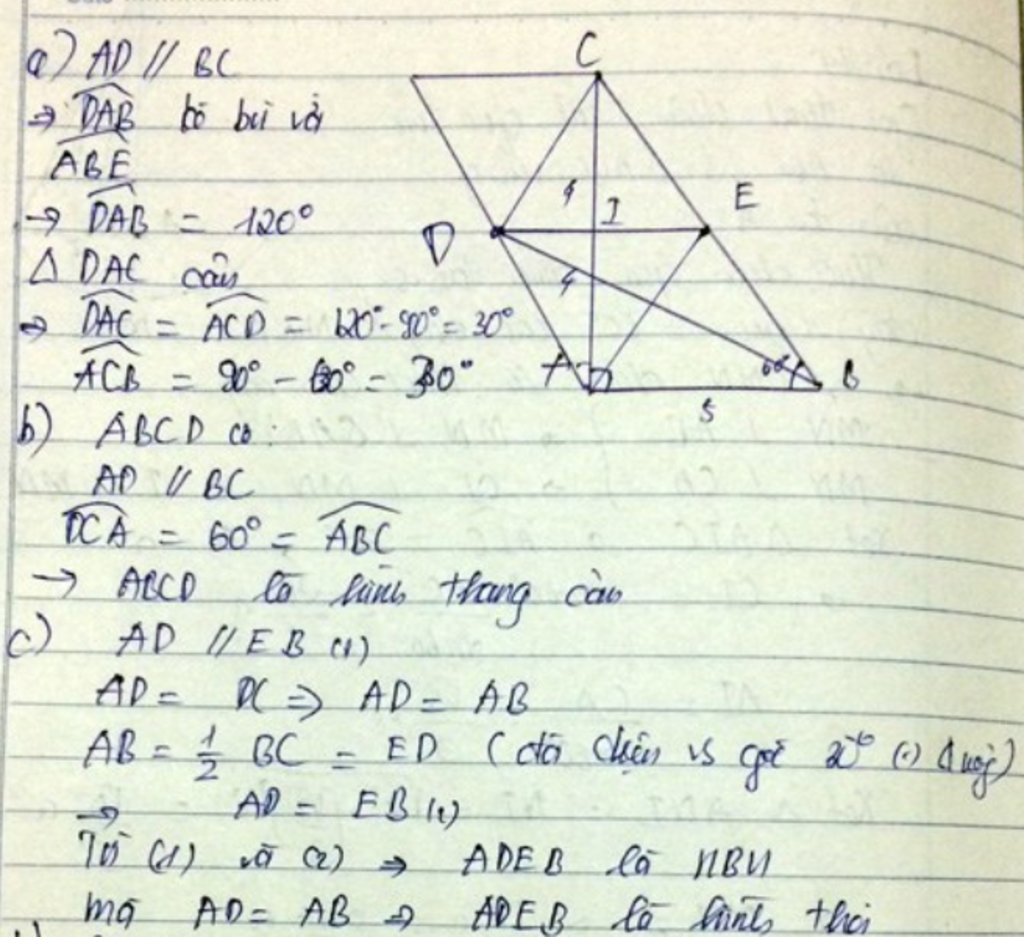 a) AD // BC
⇒ DAB bó bù với
ABE
→ DAB = 120°
Δ DAC cân
⇒ DAC = ACD = 120° - 90° = 30°
ACB = 90° - 60° = 30°
b) ABCD có
AD // BC
DCA = 60° = ABC
→ ABCD là hình thang cân
c) AD // EB (1)
AD = DC ⇒ AD = AB
AB = 1/2 BC = ED (đối diện vs góc (-) Δ
⇒ AD = EB (2)
Từ (1) và (2) ⇒ ADEB là HBH
mà AD = AB ⇒ ADEB là hình thoi
C
I
E
D
A
60°
B
5